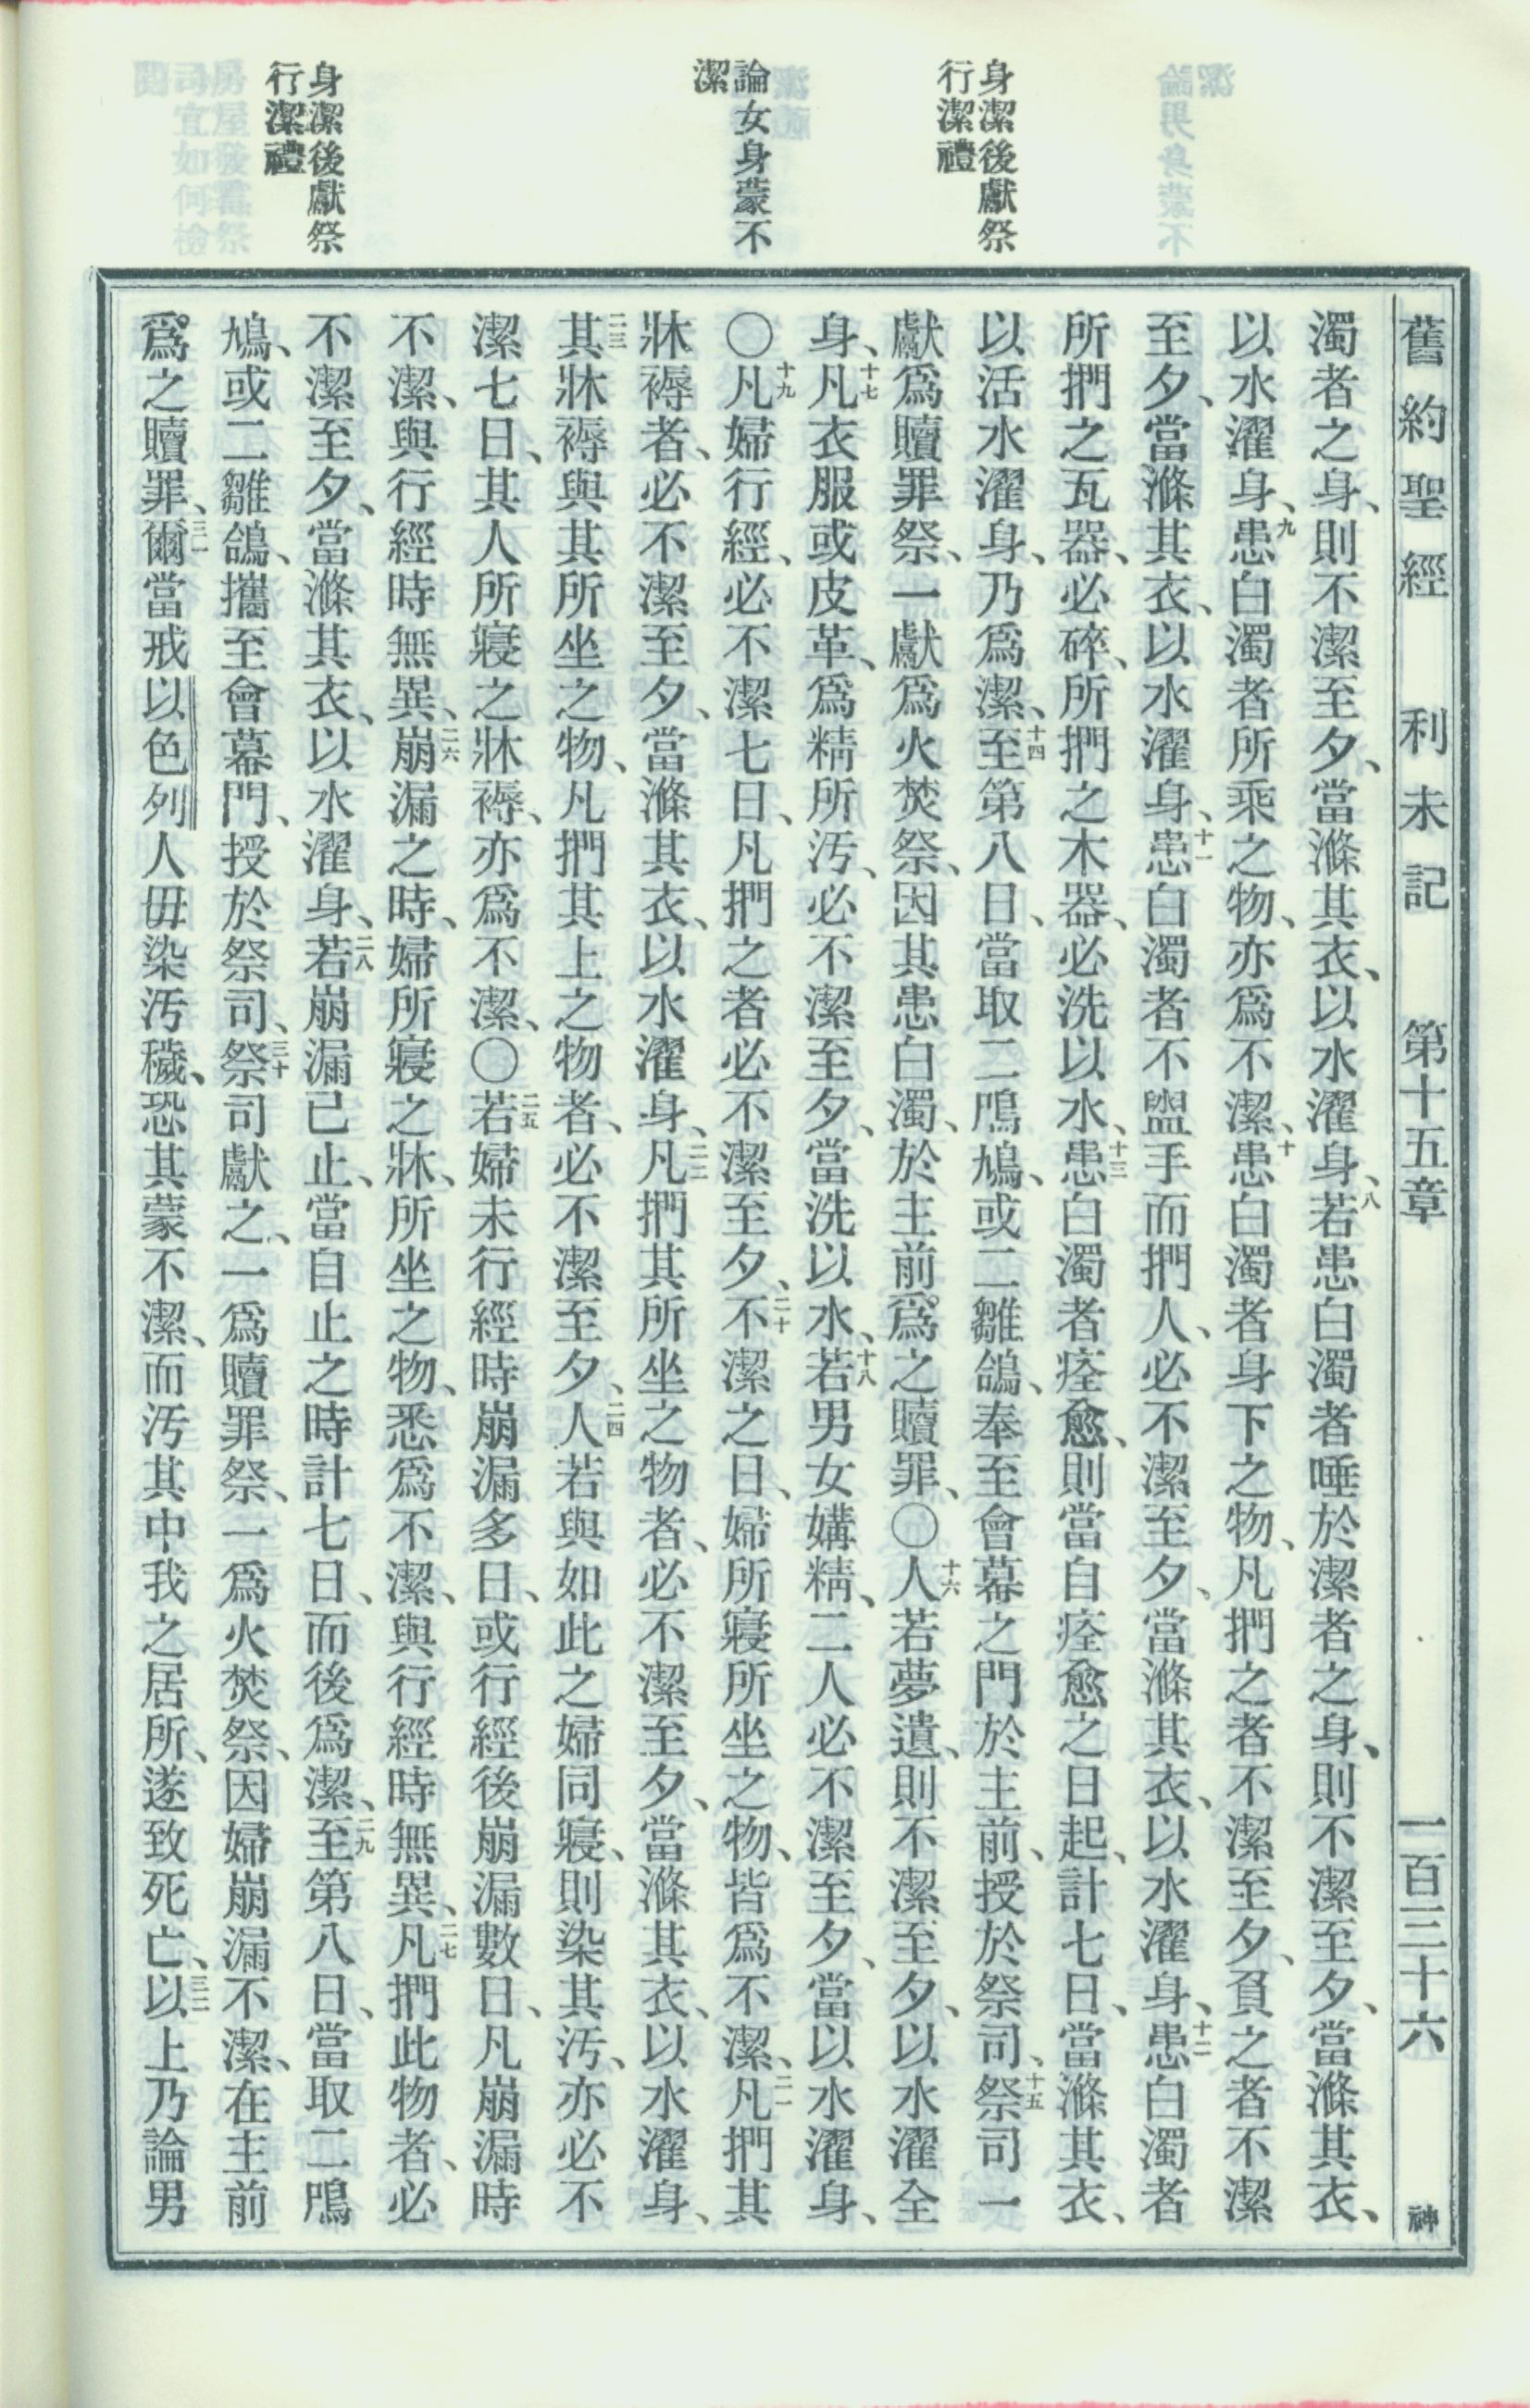 舊約聖經 利未記 第十五章 一百三十六 神
身潔後獻祭
行潔禮
論女身蒙不
潔
身潔後獻祭
行潔禮
濁者之身、則不潔至夕、當滌其衣、以水濯身、八若患白濁者唾於潔者之身、則不潔至夕、當滌其衣、
以水濯身、九患白濁者所乘之物、亦爲不潔、十患白濁者身下之物、凡捫之者不潔至夕、負之者不潔
至夕、當滌其衣、以水濯身、十一患白濁者不盥手而捫人、必不潔至夕、當滌其衣、以水濯身、十二患白濁者
所捫之瓦器、必碎、所捫之木器、必洗以水、十三患白濁者痊愈、則當自痊愈之日起、計七日、當滌其衣、
以活水濯身、乃爲潔、十四至第八日、當取二鳲鳩、或二雛鴿、奉至會幕之門於主前、授於祭司、十五祭司一
獻爲贖罪祭、一獻爲火焚祭、因其患白濁、於主前爲之贖罪、〇十六人若夢遺、則不潔至夕、以水濯全
身、十七凡衣服或皮革、爲精所汚、必不潔至夕、當洗以水、十八若男女媾精、二人必不潔至夕、當以水濯身、
〇十九凡婦行經、必不潔七日、凡捫之者必不潔至夕、二十不潔之日、婦所寢所坐之物、皆爲不潔、二一凡捫其
牀褥者、必不潔至夕、當滌其衣、以水濯身、二二凡捫其所坐之物者、必不潔至夕、當滌其衣、以水濯身、
二三其牀褥與其所坐之物、凡捫其上之物者、必不潔至夕、二四人若與如此之婦同寢、則染其汚、亦必不
潔七日、其人所寢之牀褥、亦爲不潔、〇二五若婦未行經時崩漏多日、或行經後崩漏數日、凡崩漏時
不潔、與行經時無異、二六崩漏之時、婦所寢之牀、所坐之物、悉爲不潔、與行經時無異、二七凡捫此物者、必
不潔至夕、當滌其衣、以水濯身、二八若崩漏已止、當自止之時計七日、而後爲潔、二九至第八日、當取二鳲
鳩、或二雛鴿、攜至會幕門、授於祭司、三十祭司獻之、一爲贖罪祭、一爲火焚祭、因婦崩漏不潔、在主前
爲之贖罪、三一爾當戒以色列人毋染汚穢、恐其蒙不潔、而汚其中我之居所、遂致死亡、三二以上乃論男